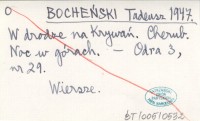 O BOCHEŃSKI Tadeusz 1947.
W drodze na Krywań. Cherub.
Noc w górach. — Odra 3,
nr 29.
Wiersze.
bT/00610532